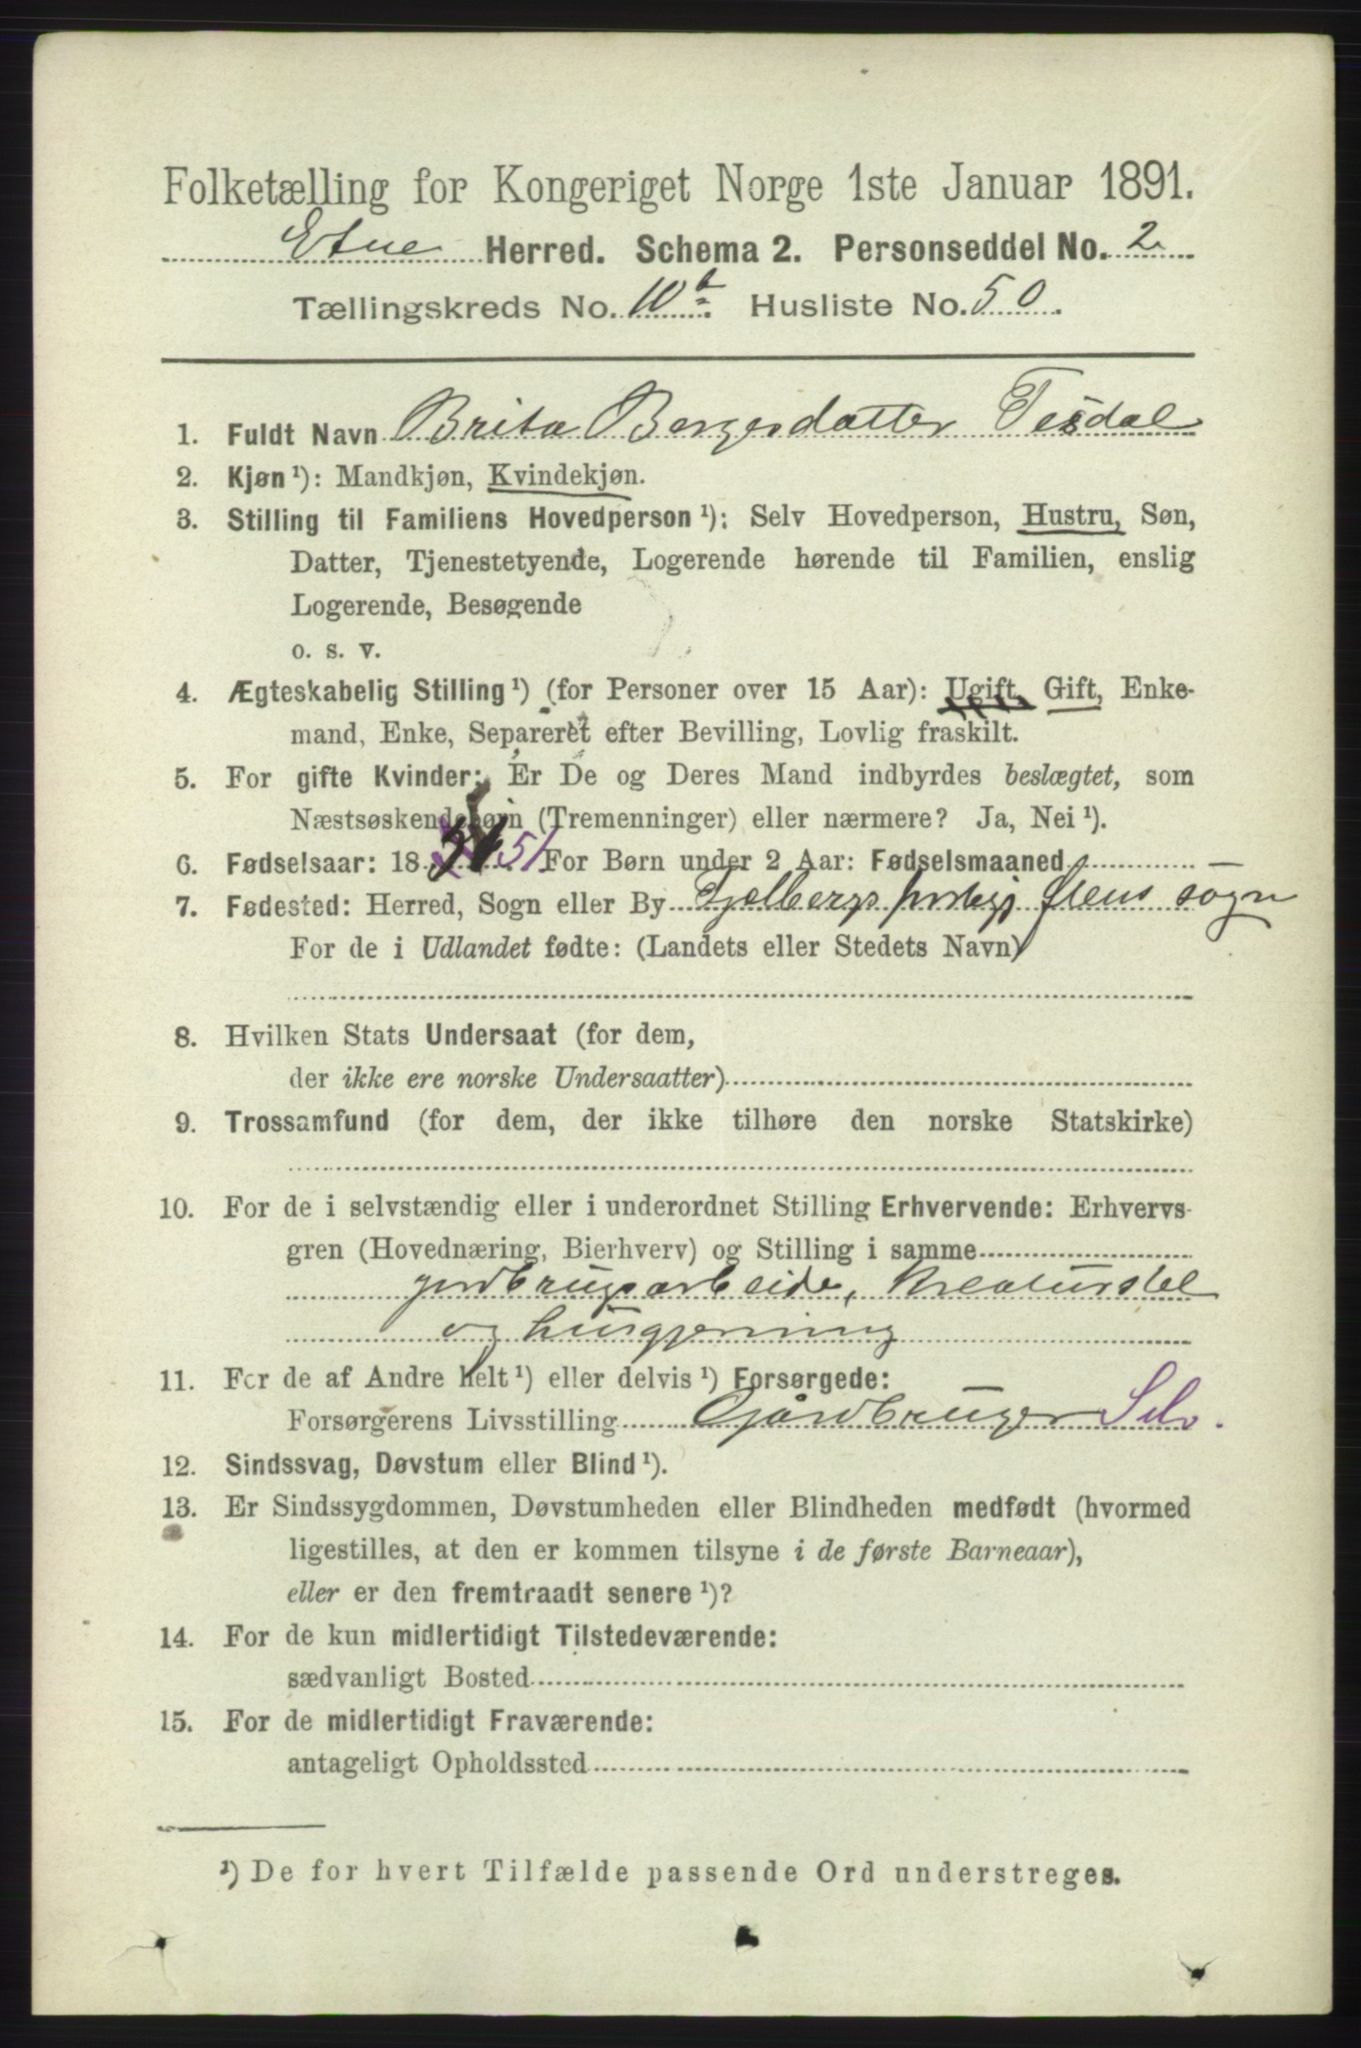 Folketælling for Kongeriget Norge 1ste Januar 1891.
Etne Herred. Schema 2. Personseddel No. 2
Tællingskreds No. 10b. Husliste No. 50.
1. Fuldt Navn Brita Bergesdatter Tesdal
2. Kjøn ¹): Mandkjøn, Kvindekjøn.
3. Stilling til Familiens Hovedperson ¹): Selv Hovedperson, Hustru, Søn,
Datter, Tjenestetyende, Logerende hørende til Familien, enslig
Logerende, Besøgende
o. s. v.
4. Ægteskabelig Stilling ¹) (for Personer over 15 Aar): Ugift, Gift, Enke-
mand, Enke, Separeret efter Bevilling, Lovlig fraskilt.
5. For gifte Kvinder: Er De og Deres Mand indbyrdes beslægtet, som
Næstsøskendebørn (Tremenninger) eller nærmere? Ja, Nei ¹).
6. Fødselsaar: 18 51. For Børn under 2 Aar: Fødselsmaaned —
7. Fødested: Herred, Sogn eller By Fjelbergs sogn
For de i Udlandet fødte: (Landets eller Stedets Navn)
8. Hvilken Stats Undersaat (for dem,
der ikke ere norske Undersaatter)
9. Trossamfund (for dem, der ikke tilhøre den norske Statskirke)
10. For de i selvstændig eller i underordnet Stilling Erhvervende: Erhvervs-
gren (Hovednæring, Bierhverv) og Stilling i samme
jordbrugsarbeide, Kreaturstel
og husgjerning
11. For de af Andre helt ¹) eller delvis ¹) Forsørgede:
Forsørgerens Livsstilling Gårdbruger Selv.
12. Sindssvag, Døvstum eller Blind ¹).
13. Er Sindssygdommen, Døvstumheden eller Blindheden medfødt (hvormed
ligestilles, at den er kommen tilsyne i de første Barneaar),
eller er den fremtraadt senere ¹)?
14. For de kun midlertidigt Tilstedeværende:
sædvanligt Bosted
15. For de midlertidigt Fraværende:
antageligt Opholdssted
¹) De for hvert Tilfælde passende Ord understreges.